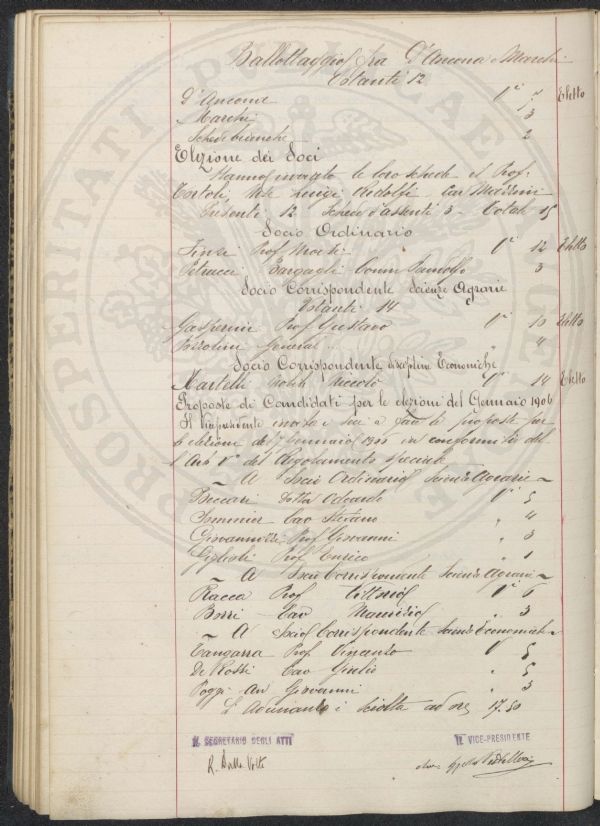 Ballottaggio fra D'Ancona e Marchi
Votanti 12
D'Ancona Vi 7 Eletto
Marchi " 3
Schede bianche 2
Elezione dei Soci
Hanno inviato le loro schede il Prof.
Luigi Ridolfi
Presenti 12 Schede d'assenti 3 - Totale 15
Socio Ordinario
Prof Vi 12 Eletto
Petrucci Bargagli Comm Pandolfo 3
Socio Corrispondente Scienze Agrarie
Votanti 14
Gasperini Prof Gustavo Vi 10 Eletto
Pozzolini General " 4
Socio Corrispondente discipline Economiche
Martelli Niccolò Vi 14 Eletto
Proposte di Candidati per le elezioni del Gennaio 1906
Il Vicepresidente invita i Soci a fare le proposte per
le elezioni del 7 Gennaio in conformità del
l'Art V° del Regolamento speciale
~ A Soci Ordinari Scienze Agrarie ~
Beccari Dott Odoardo Vi 5
Sommier Cav Stefano " 4
Giovannozzi Prof Giovanni " 3
Giglioli Prof Enrico " 1
~ A Soci Corrispondenti Scienze Agrarie ~
Racca Prof Vittorio Vi 6
Borri Cav Maurizio " 3
~ A Soci Corrispondente Scienze Economiche ~
Tangorra Prof Vincenzo V 5
De Rossi Cav Giulio " 5
Poggi Av Giovanni " 3
L'Adunanza è sciolta ad ore 17.30
IL SEGRETARIO DEGLI ATTI
IL VICE-PRESIDENTE
R. Dalla Volta
PROSPERITATI PUBLICAE AUGENDAE